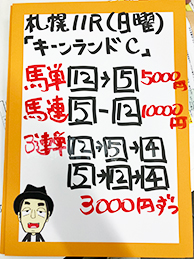 札幌11R(日曜)
「キーンランドC」
馬単 12→5 5000円
馬連 5-12 10000円
3連単 12→5→4
5→12→4
3000円ずつ